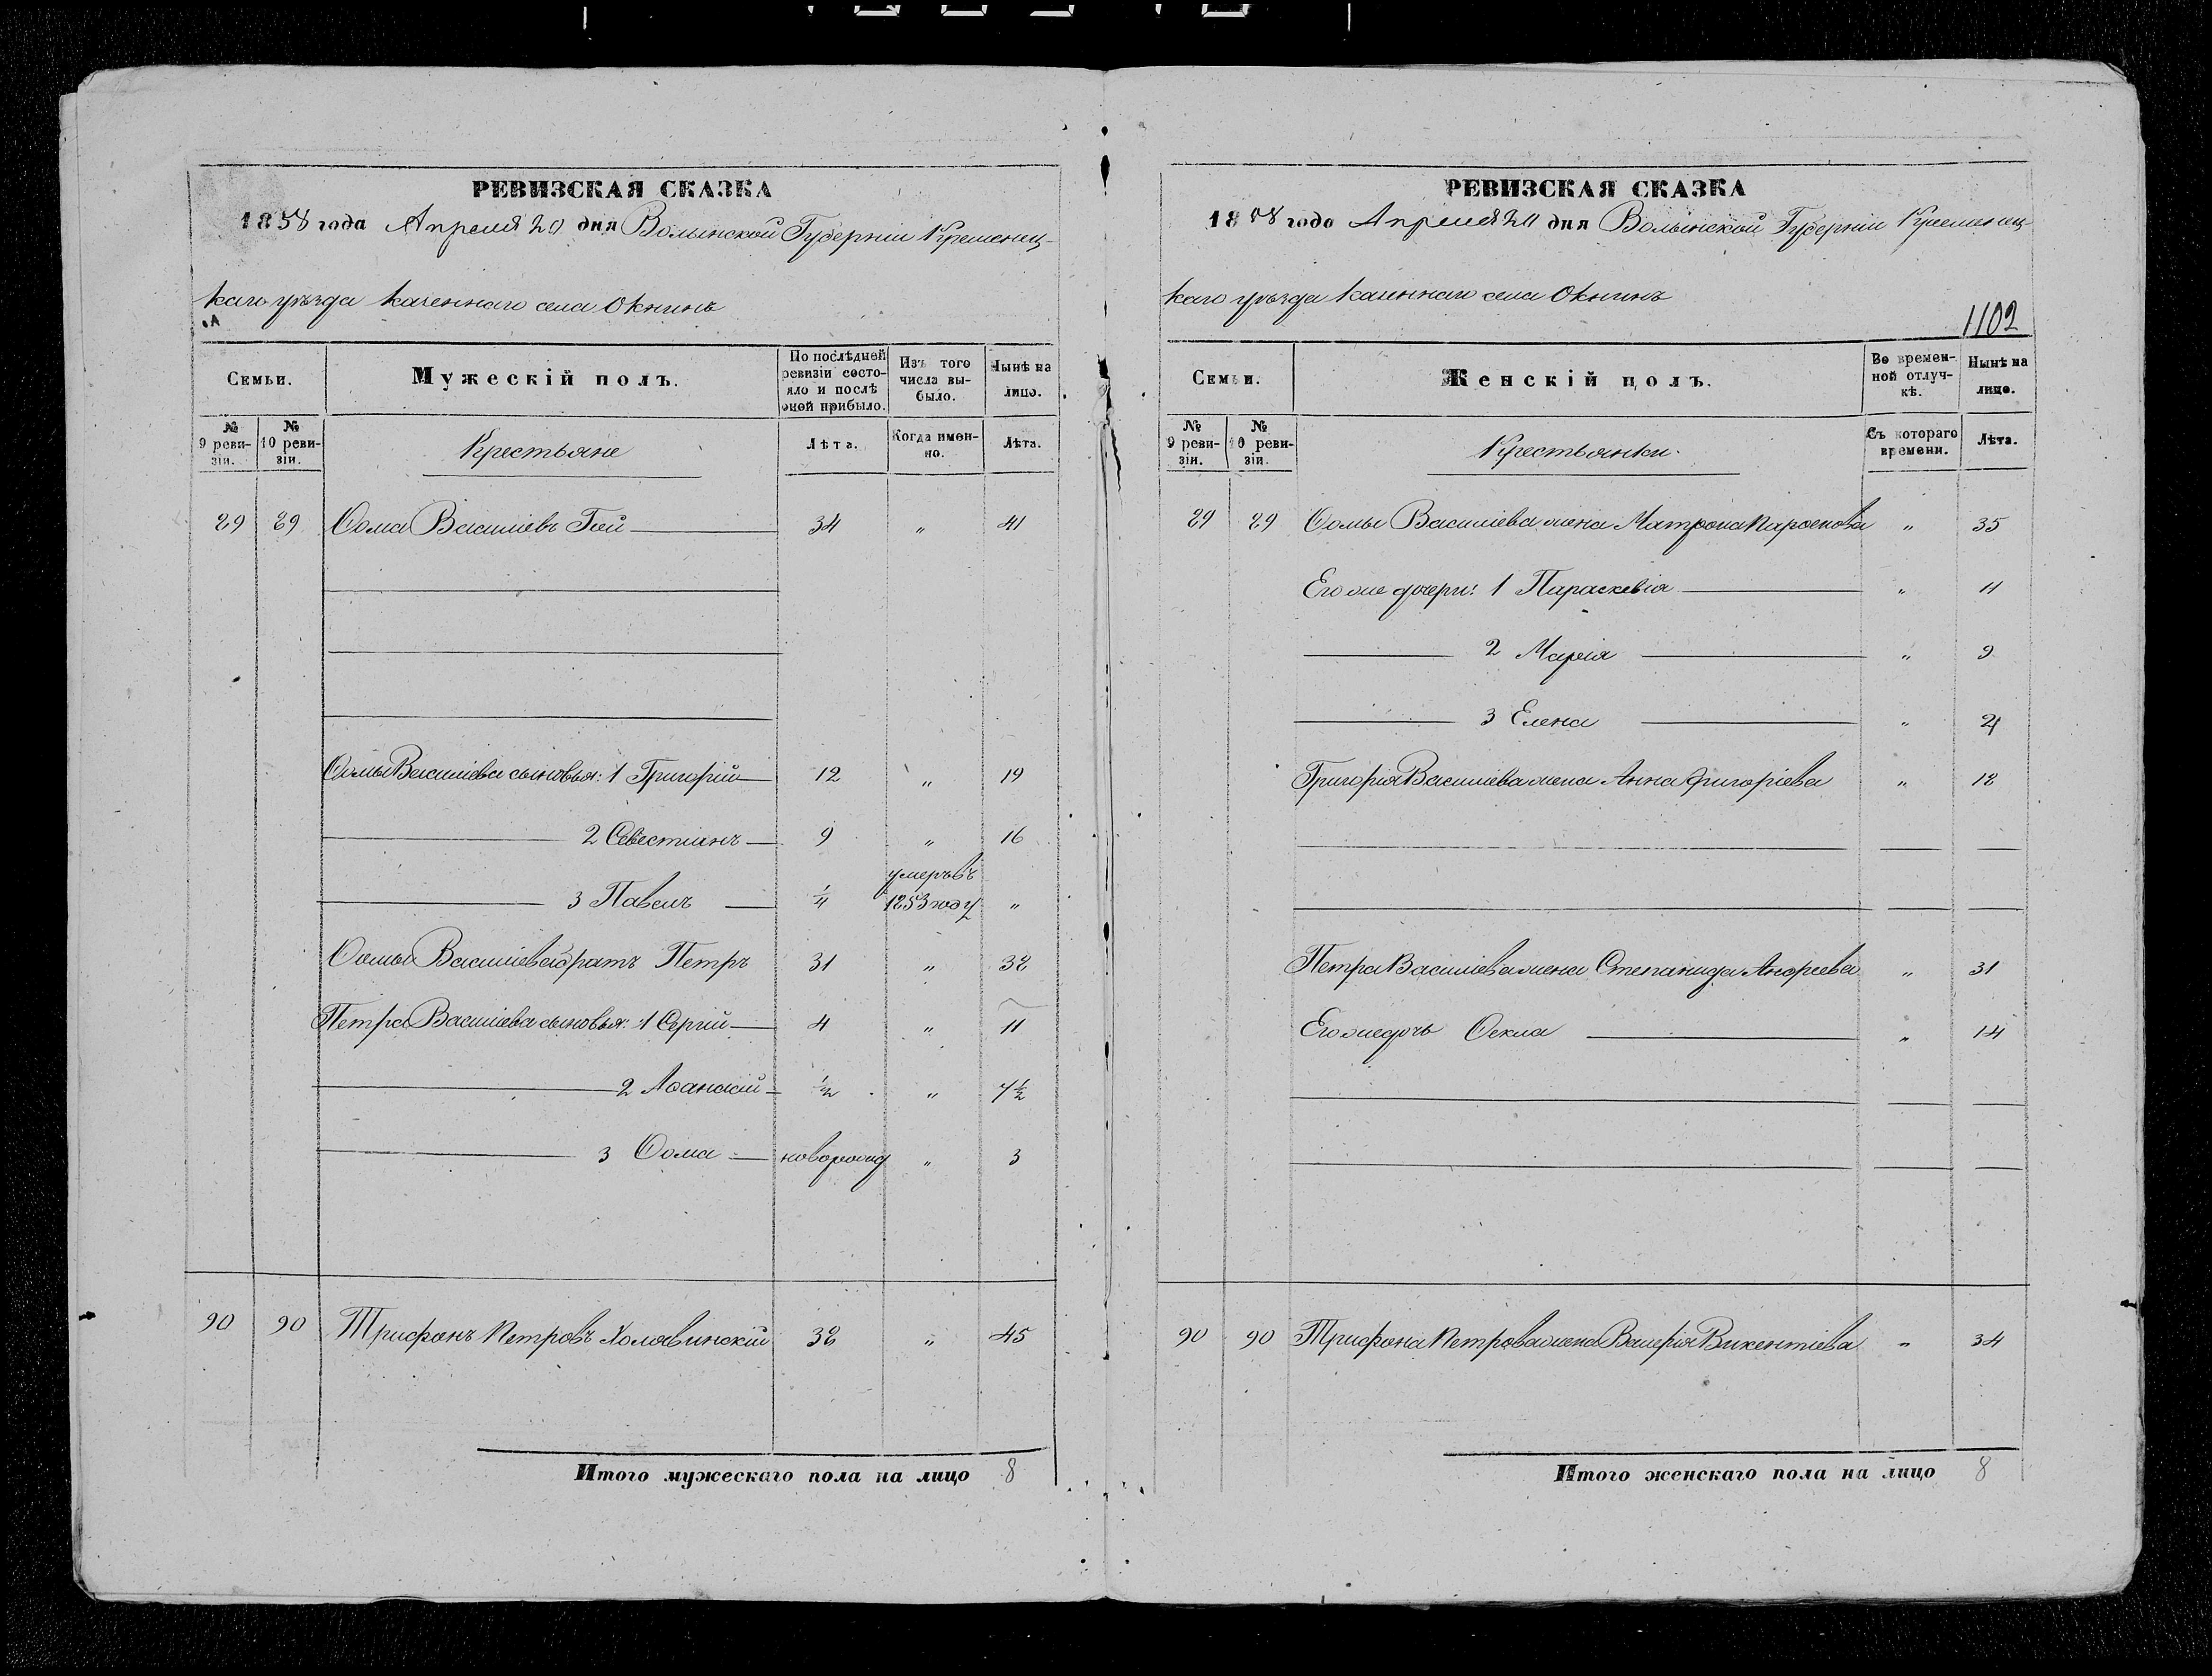 РЕВИЗСКАЯ СКАЗКА
1858 года Апреля 20 дня Волынской Губерніи Кременец-
каго уѣзда казеннаго села Окнинъ
Семьи.
Мужескій полъ.
По послѣдней ревизіи состо-яло и послѣ оной прибыло.
Изъ того числа вы-было.
Нынѣ на лицо.
№ 9 реви-зіи.
№ 10 реви-зіи.
Крестьяне
Лѣта.
Когда имен-но.
Лѣта.
89 89 Ѳома Василіевъ Гай 34 " 41
Ѳомы Василіева сыновья: 1 Григорій 12 " 19
2 Севестіанъ 9 " 16
3 Павелъ 1/4 умеръ въ 1853 году "
Ѳомы Василіева братъ Петръ 31 " 38
Петра Василіева сыновья: 1 Сергій 4 " 11
2 Аѳанасій 1/2 " 7 1/2
3 Ѳома новорожд " 3
90 90 Трифонъ Петровъ Холявинскій 38 " 45
Итого мужескаго пола на лицо 8
РЕВИЗСКАЯ СКАЗКА
1858 года Апреля 20 дня Волынской Губерніи Кременец-
каго уѣзда казеннаго села Окнинъ
1102
Семьи.
Женскій полъ.
Во времен-ной отлуч-кѣ.
Нынѣ на лицо.
№ 9 реви-зіи.
№ 10 реви-зіи.
Крестьянки.
Съ котораго времени.
Лѣта.
89 89 Ѳомы Василіева жена Матрона Парѳенова " 35
Его же дочери: 1 Параскевія " 11
2 Марія " 9
3 Елена "
Григорія Василіева жена Анна Григоріева " 18
Петра Василіева жена Степанида Андреева " 31
Его же дочь Ѳекла " 14
90 90 Трифона Петрова жена Валерія Викентіева " 34
Итого женскаго пола на лицо 8